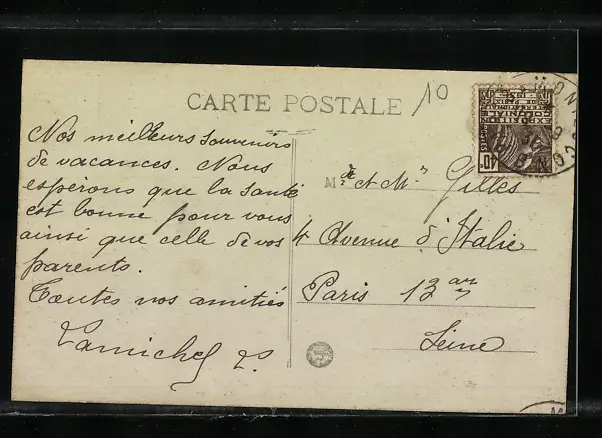 CARTE POSTALE
10
Nos meilleurs souvenirs
de vacances. Nous
espérons que la santé
est bonne pour vous
ainsi que celle de vos
parents.
Toutes nos amitiés
M et Mr Gilles
4 Avenue d'Italie
Paris 13
Seine
POSTES
40